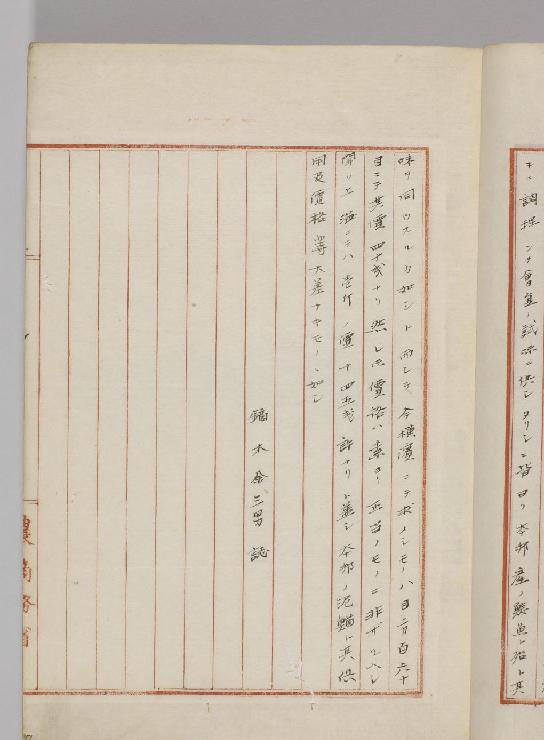 キニ調理シテ會集ノ試味ニ供シタリシニ皆曰ク本邦産ノ鰻魚ト殆ト其
味ヲ同ウスルカ如シト而シテ本橫濱ニテ求メシモノハ目方百六十
目ニテ其價四十戔ナリ然レモ價格ハ素ヨリ正当ノモノニ非ザルヘシ
聞ク上海ニテハ壱斤ノ價十四五戔許ナリト蓋シ本邦ノ泥鰌ト其供
用及價格等大差ナキモノヽ如シ
鏑木余三男誌
農商務省